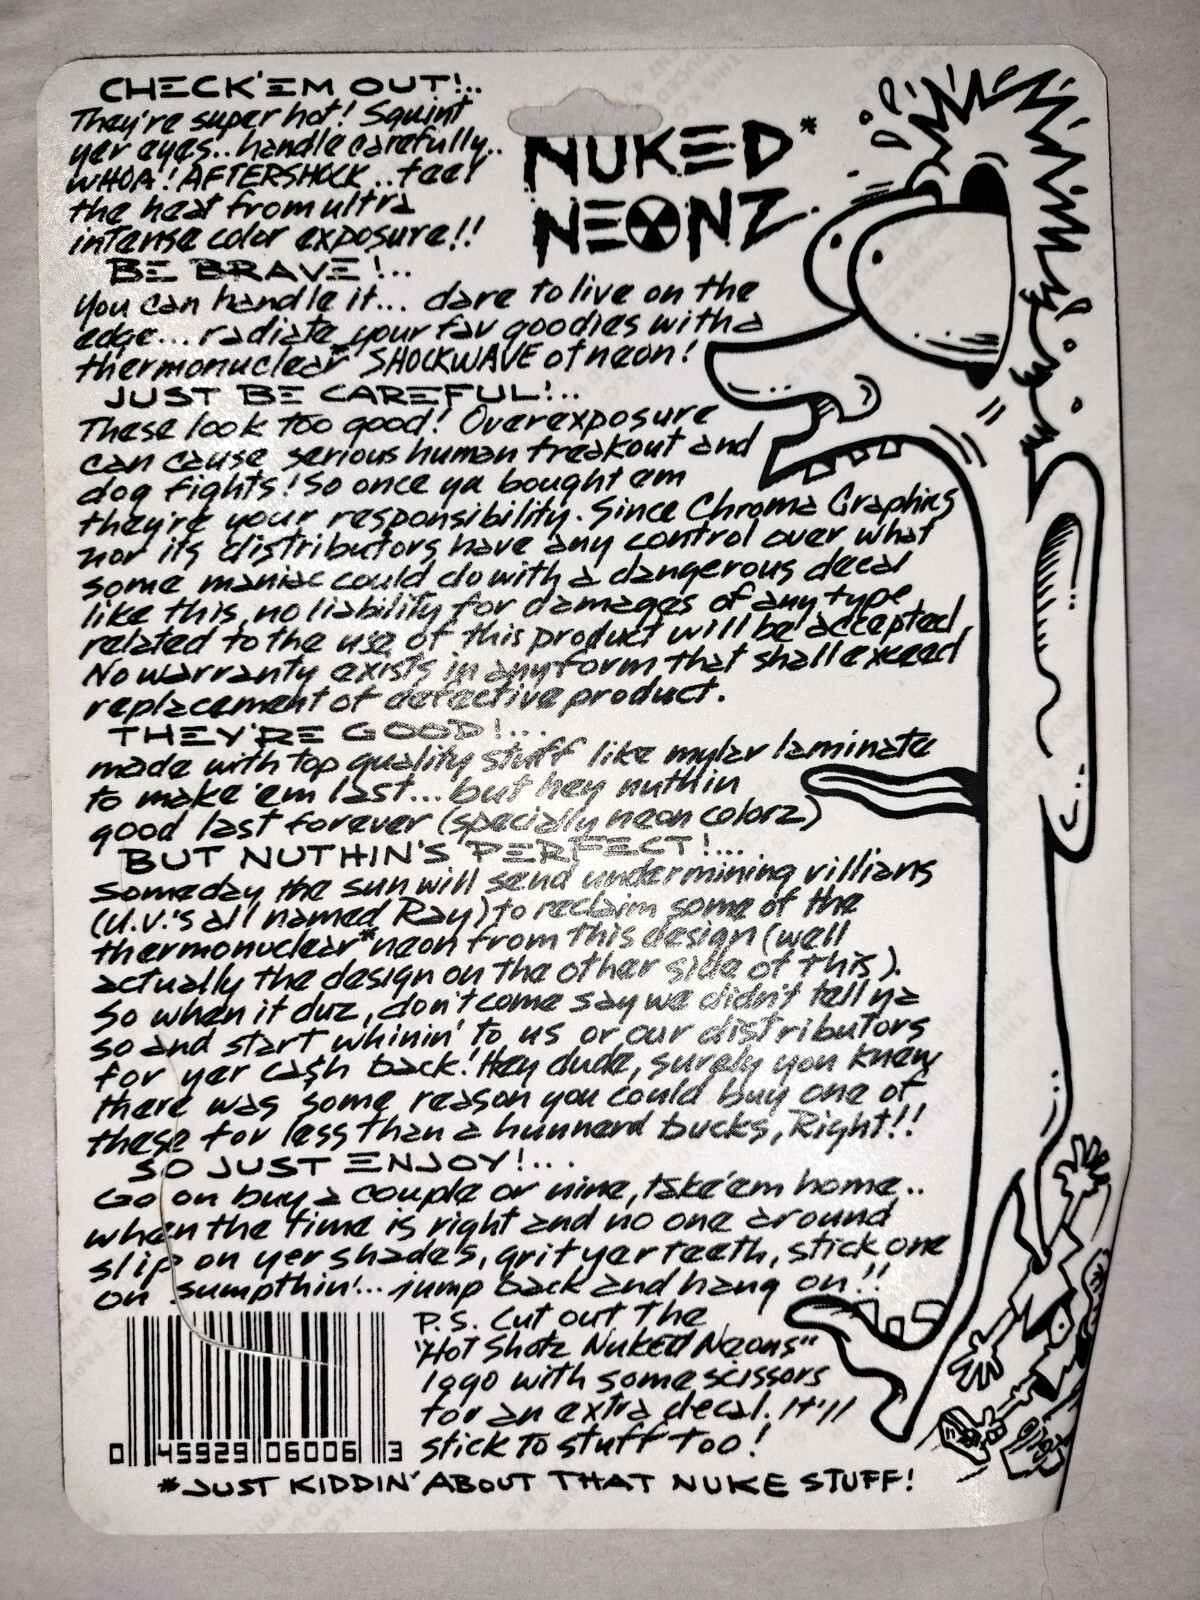 CHECK'EM OUT!..
They're super hot! Squint
yer eyes.. handle carefully..
WHOA! AFTERSHOCK.. feel
the heat from ultra
intense color exposure!!
NUKED*
NEONZ
BE BRAVE!...
You can handle it... dare to live on the
edge... radiate your fav goodies with a
thermonuclear* SHOCKWAVE of neon!
JUST BE CAREFUL!..
These look too good! Overexposure
can cause serious human freakout and
dog fights! So once ya bought em
they're your responsibility. Since Chroma Graphics
nor its distributors have any control over what
some maniac could do with a dangerous decal
like this, no liability for damages of any type
related to the use of this product will be accepted.
No warranty exists in any form that shall exceed
replacement of defective product.
THEY'RE GOOD!...
made with top quality stuff like mylar laminate
to make 'em last... but hey nuthin
good last forever (specially neon colorz)
BUT NUTHIN'S PERFECT!...
Someday the sun will send undermining villians
(U.V.'s all named Ray) to reclaim some of the
thermonuclear* neon from this design (well
actually the design on the other side of this).
So when it duz, don't come say we didn't tell ya
so and start whinin' to us or our distributors
for yer ca$h back! Hey dude, surely you knew
there was some reason you could buy one of
these for less than a hunnerd bucks, Right!!
SO JUST ENJOY!...
Go on buy a couple or nine, take'em home..
when the time is right and no one around
slip on yer shades, grit yer teeth, stick one
on sumpthin'... jump back and hang on!!
P.S. Cut out the
"Hot Shotz Nuked Neons"
logo with some scissors
for an extra decal. It'll
stick to stuff too!
0 45929 06006 3
*JUST KIDDIN' ABOUT THAT NUKE STUFF!